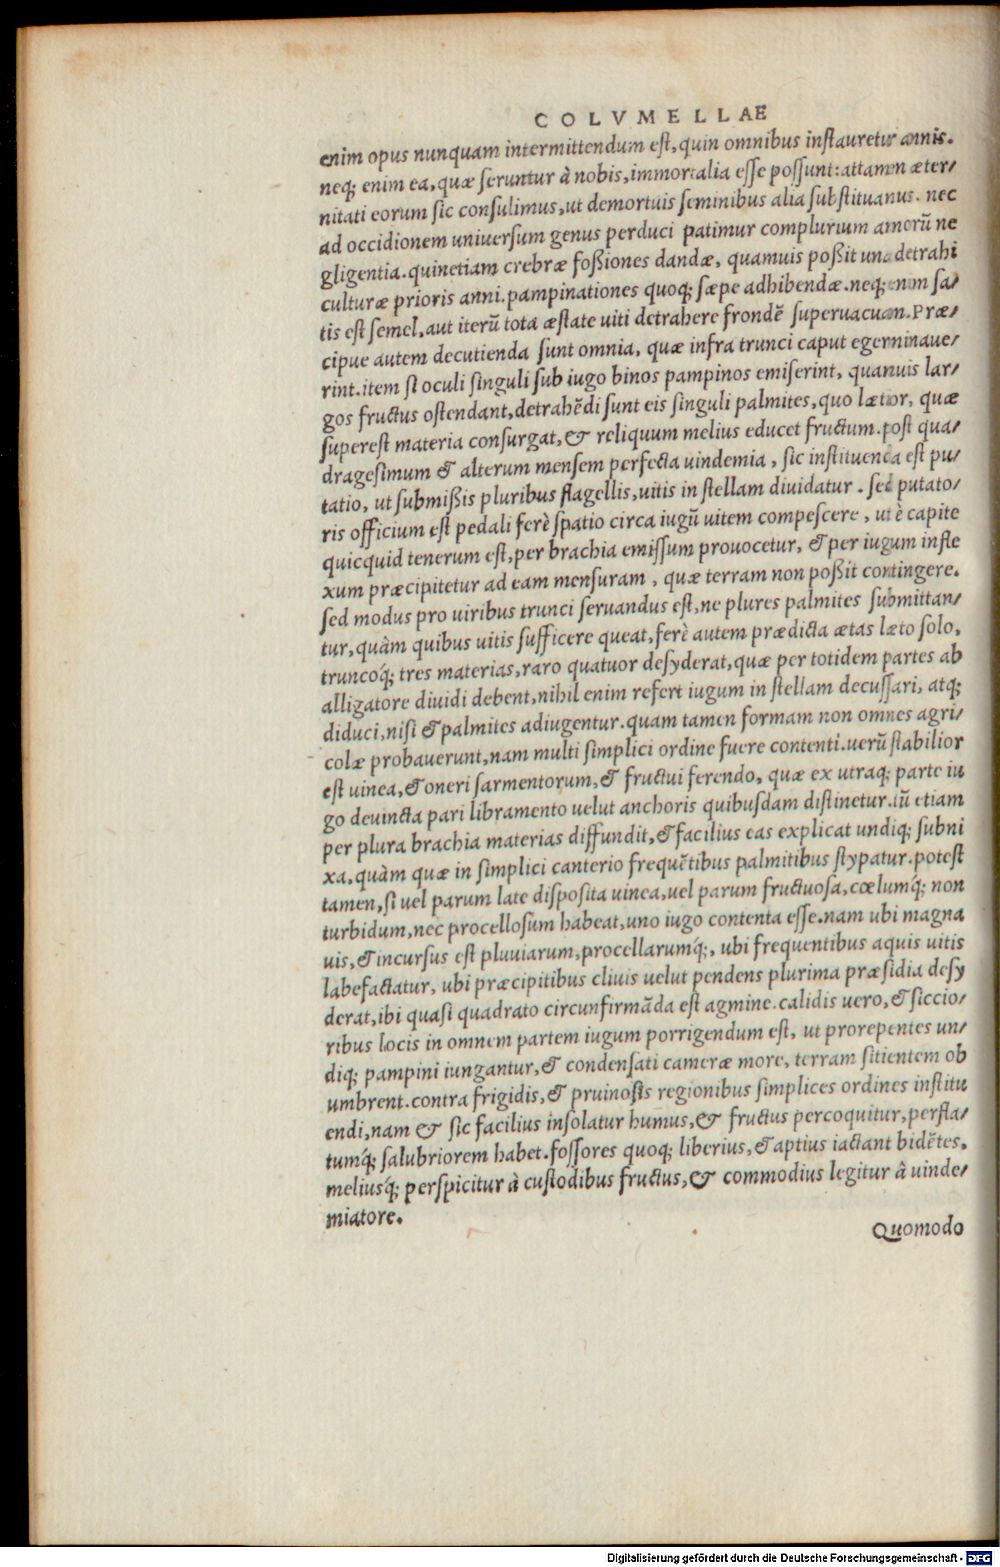 COLVMELLAE
enim opus nunquam intermittendum est, quin omnibus instauretur annis.
neq; enim ea, quæ seruntur à nobis, immortalia esse possunt: attamen æter-
nitati eorum sic consulimus, ut demortuis seminibus alia substituamus. nec
ad occidionem uniuersum genus perduci patimur complurium annorũ ne
gligentia. quinetiam crebræ foßiones dandæ, quamuis poßit una detrahi
culturæ prioris anni. pampinationes quoq; sæpe adhibendæ. neq; enim sa-
tis est semel, aut iterũ tota æstate uiti detrahere frondẽ superuacuam. Præ-
cipue autem decutienda sunt omnia, quæ infra trunci caput egerminaue-
rint. item si oculi singuli sub iugo binos pampinos emiserint, quamuis lar-
gos fructus ostendant, detrahẽdi sunt eis singuli palmites, quo lætior, quæ
superest materia consurgat, & reliquum melius educet fructum. post qua-
dragesimum & alterum mensem perfecta uindemia, sic instituenda est pu-
tatio, ut submißis pluribus flagellis, uitis in stellam diuidatur. sed putato-
ris officium est pedali ferè spatio circa iugũ uitem compescere, ut è capite
quicquid tenerum est, per brachia emissum prouocetur, & per iugum infle
xum præcipitetur ad eam mensuram, quæ terram non poßit contingere.
sed modus pro uiribus trunci seruandus est, ne plures palmites submittan-
tur, quàm quibus uitis sufficere queat, ferè autem prædicta ætas læto solo,
truncoq́; tres materias, raro quatuor desyderat, quæ per totidem partes ab
alligatore diuidi debent, nihil enim refert iugum in stellam decussari, atq;
diduci, nisi & palmites adiugentur. quam tamen formam non omnes agri-
colæ probauerunt, nam multi simplici ordine fuere contenti. uerũ stabilior
est uinea, & oneri sarmentorum, & fructui ferendo, quæ ex utraq; parte iu
go deuincta pari libramento uelut anchoris quibusdam distinetur. tũ etiam
per plura brachia materias diffundit, & facilius eas explicat undiq; subni
xa, quàm quæ in simplici canterio frequẽtibus palmitibus stypatur. potest
tamen, si uel parum late disposita uinea, uel parum fructuosa, cœlumq́; non
turbidum, nec procellosum habeat, uno iugo contenta esse. nam ubi magna
uis, & incursus est pluuiarum, procellarumq́;, ubi frequentibus aquis uitis
labefactatur, ubi præcipitibus cliuis uelut pendens plurima præsidia desy
derat, ibi quasi quadrato circunfirmãda est agmine. calidis uero, & siccio-
ribus locis in omnem partem iugum porrigendum est, ut prorepentes un-
diq; pampini iungantur, & condensati cameræ more, terram sitientem ob
umbrent. contra frigidis, & pruinosis regionibus simplices ordines institu
endi, nam & sic facilius insolatur humus, & fructus percoquitur, perfla-
tumq́; salubriorem habet. fossores quoq; liberius, & aptius iactant bidẽtes.
meliusq́; perspicitur à custodibus fructus, & commodius legitur à uinde-
miatore.
Quomodo
Digitalisierung gefördert durch die Deutsche Forschungsgemeinschaft - DFG